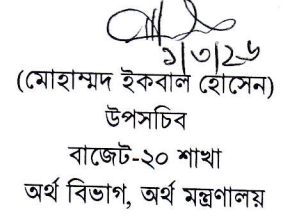 ১/৩/২৬
(মোহাম্মদ ইকবাল হোসেন)
উপসচিব
বাজেট-২০ শাখা
অর্থ বিভাগ, অর্থ মন্ত্রণালয়